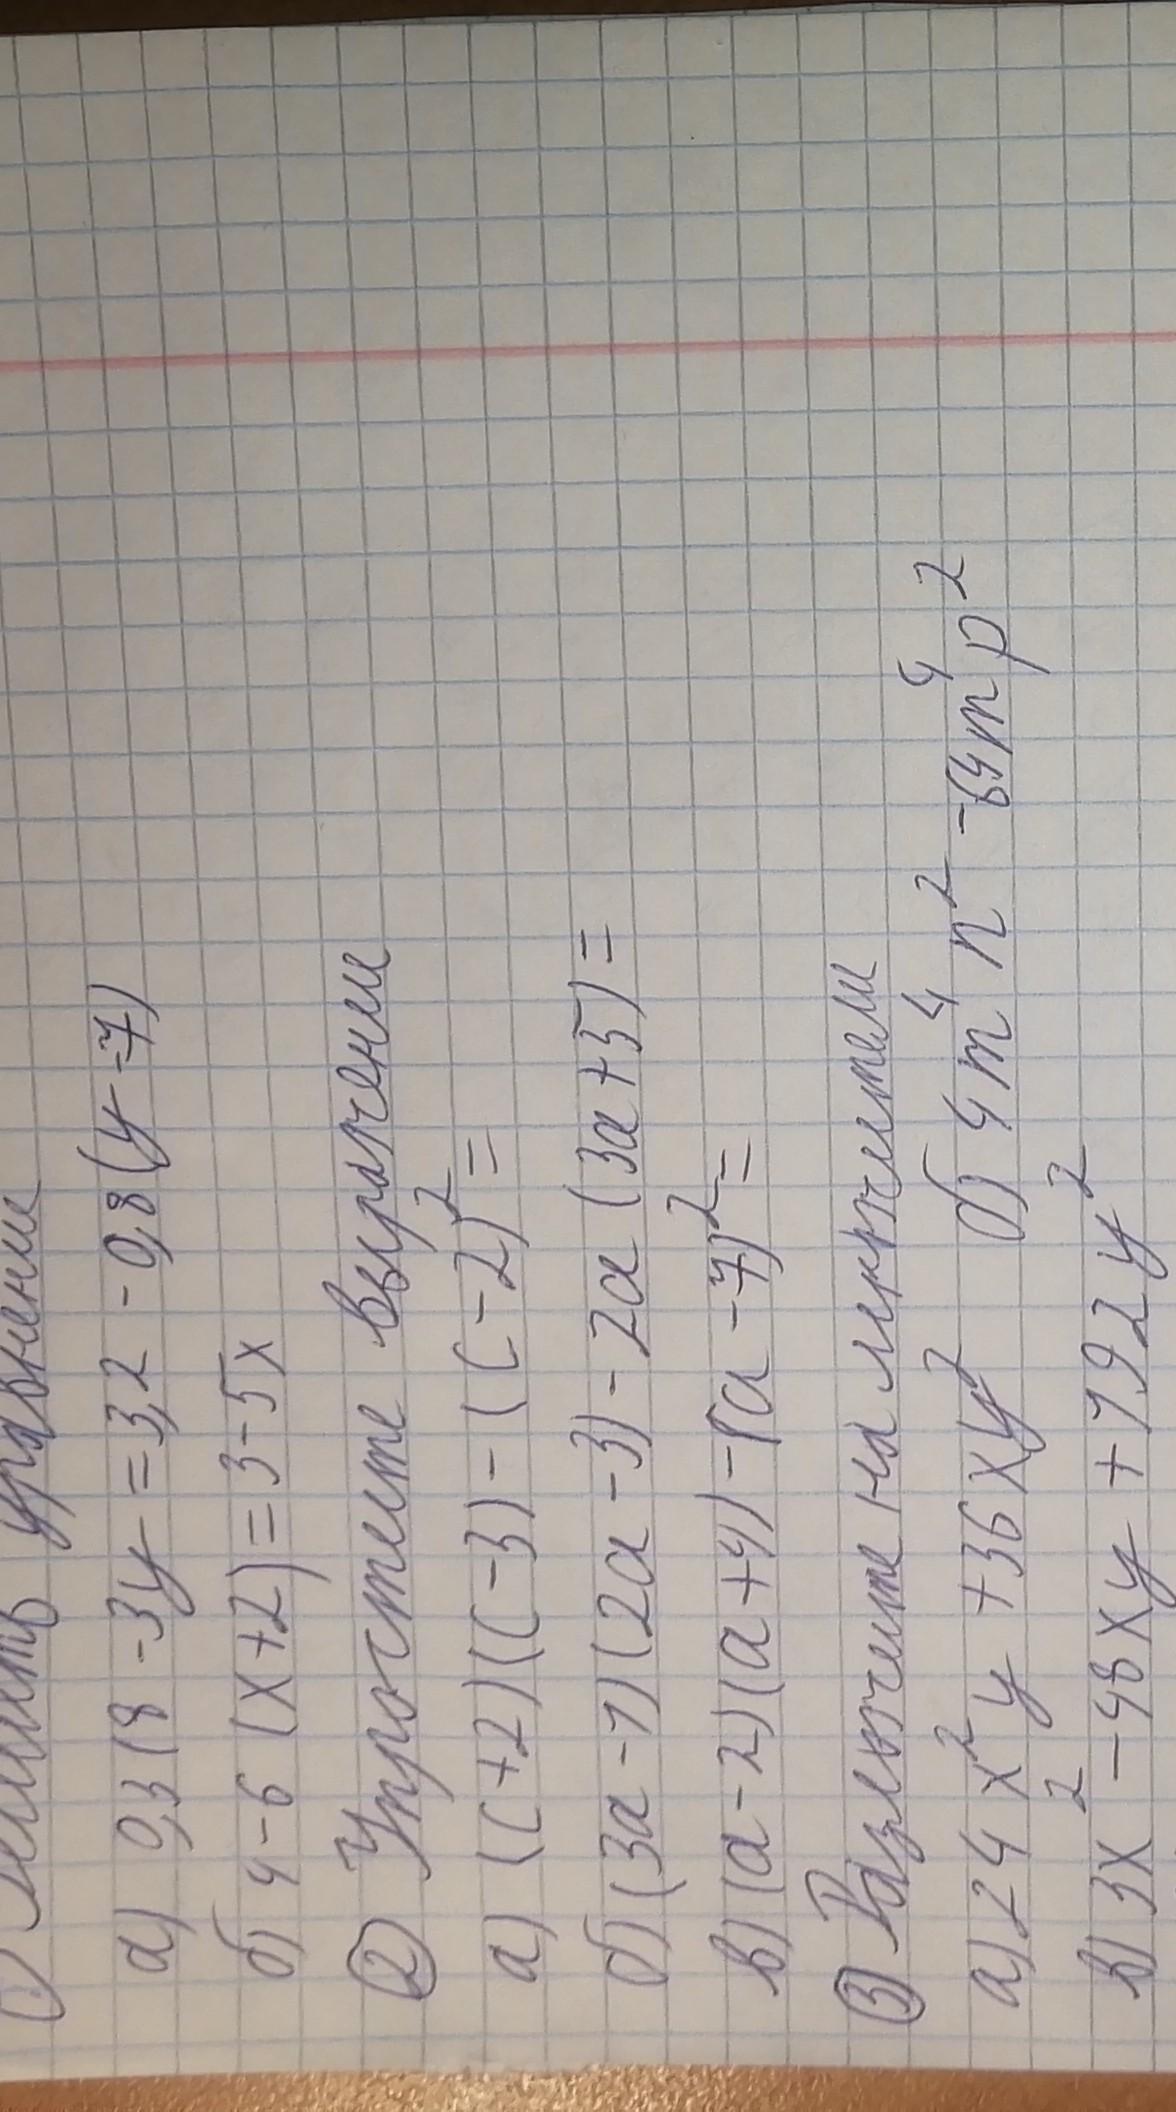 1) Решить уравнение
а) 0,3 (8 - 3y = 3,2 - 0,8 (y - 7)
б) 4 - 6 (x + 2) = 3 - 5x
2) Упростите выражении
а) (c + 2)(c - 3) - (c - 2)² =
б) (3a - 1)(2a - 3) - 2a (3a + 5) =
в) (a - 2)(a + 4) - (a - 7)² =
3) Разложите на множители
а) 24 x² y + 36 x y² б) 4 m⁴ n² - 64 m⁴ p²
в) 3x² - 48 x y + 192 y²